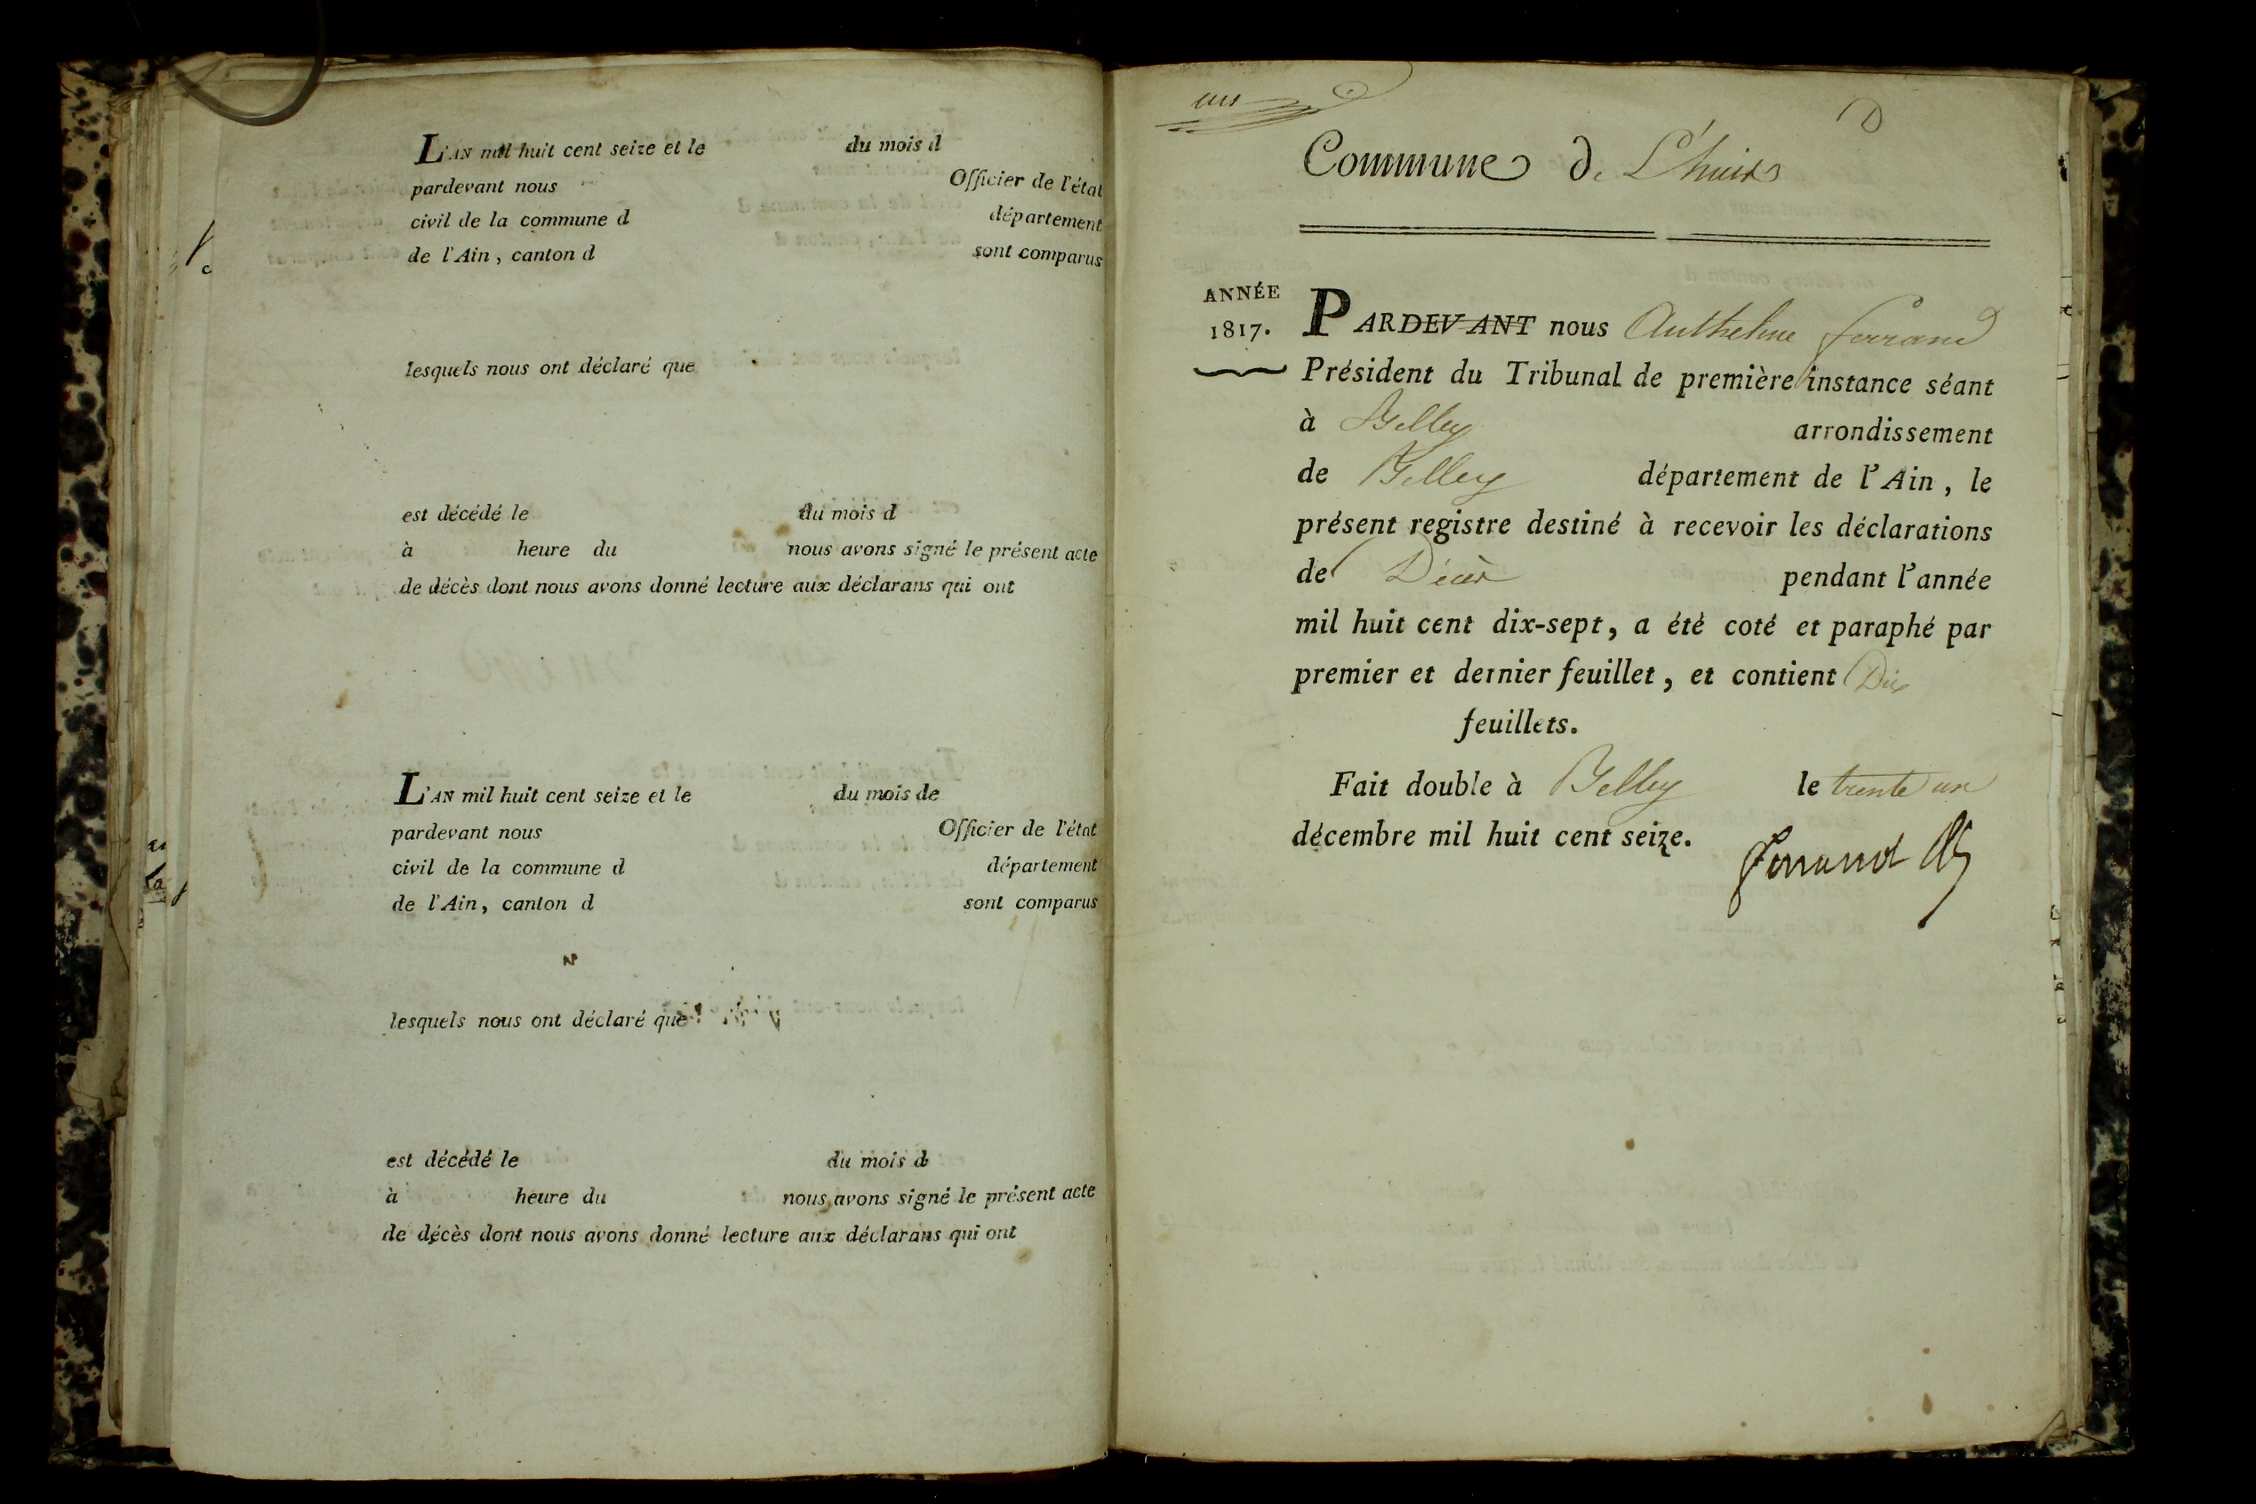 L'AN mil huit cent seize et le du mois d
pardevant nous Officier de l'état
civil de la commune d département
de l'Ain, canton d sont comparus
lesquels nous ont déclaré que
est décédé le du mois d
à heure du nous avons signé le présent acte
de décès dont nous avons donné lecture aux déclarans qui ont
L'AN mil huit cent seize et le du mois de
pardevant nous Officier de l'état
civil de la commune d département
de l'Ain, canton d sont comparus
lesquels nous ont déclaré que
est décédé le du mois d
à heure du nous avons signé le présent acte
de décès dont nous avons donné lecture aux déclarans qui ont
Commune de L'huis
ANNÉE
1817.
PARDEVANT nous Anthelme ferrand
Président du Tribunal de première instance séant
à Belley arrondissement
de Belley département de l'Ain, le
présent registre destiné à recevoir les déclarations
de Décès pendant l'année
mil huit cent dix-sept, a été coté et paraphé par
premier et dernier feuillet, et contient Dix
feuillets.
Fait double à Belley le trente un
décembre mil huit cent seize.
ferrand